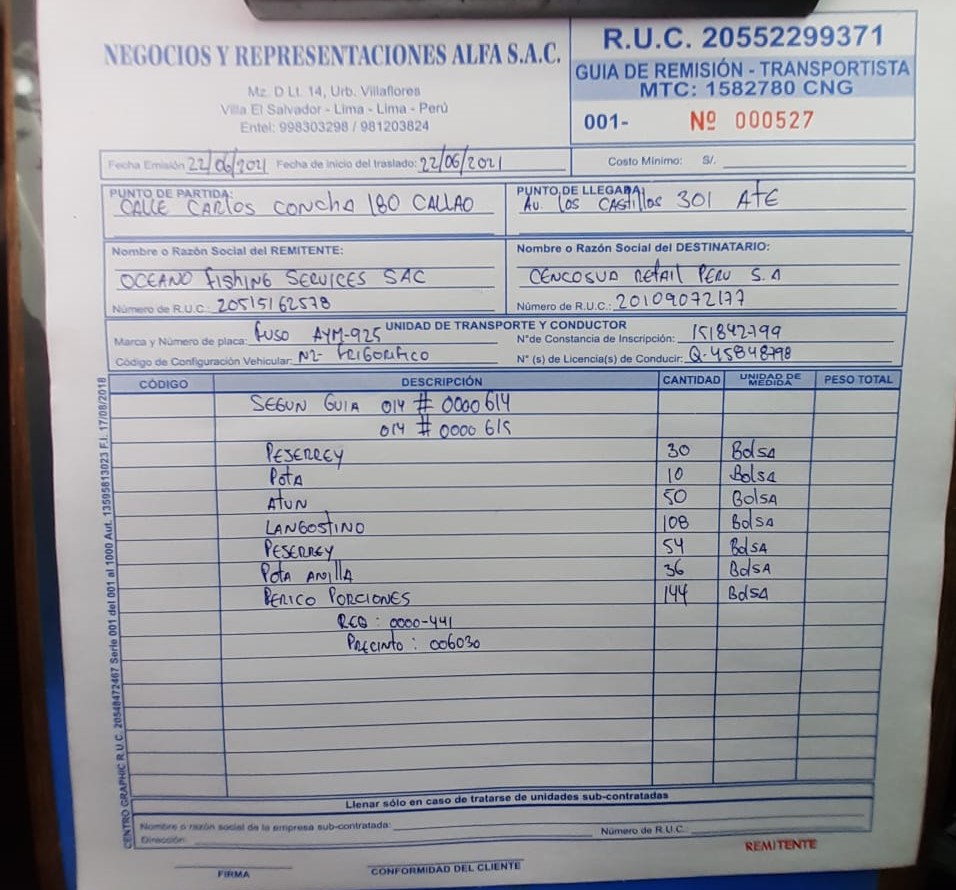 NEGOCIOS Y REPRESENTACIONES ALFA S.A.C.
Mz. D Lt. 14, Urb. Villaflores
Villa El Salvador - Lima - Lima - Perú
Entel: 998303298 / 981203824
R.U.C. 20552299371
GUIA DE REMISIÓN - TRANSPORTISTA
MTC: 1582780 CNG
001- Nº 000527
Fecha Emisión 22/06/2021 Fecha de inicio del traslado: 22/06/2021
Costo Mínimo: S/.
PUNTO DE PARTIDA:
CALLE CARLOS CONCHA 180 CALLAO
PUNTO DE LLEGADA:
AV. Los CAStillos 301 ATE
Nombre o Razón Social del REMITENTE:
OCEANO FISHING SERVICES SAC
Número de R.U.C.: 20515162578
Nombre o Razón Social del DESTINATARIO:
CENCOSUD RETAIL PERU S.A
Número de R.U.C.: 20109072177
UNIDAD DE TRANSPORTE Y CONDUCTOR
Marca y Número de placa: fuso AYM-925
N°de Constancia de Inscripción: 151842799
Código de Configuración Vehicular: N2- FRIGORIFICO
N° (s) de Licencia(s) de Conducir: Q-45848798
CÓDIGO DESCRIPCIÓN CANTIDAD UNIDAD DE MEDIDA PESO TOTAL
SEGUN GUIA 014 # 0000614
014 # 0000615
PESERREY 30 BolSA
POTA 10 BolSA
ATUN 50 BolSA
LANGOSTINO 108 BolSA
PESERREY 54 BolSA
POTA ANILLA 36 BolSA
PERICO PORCIONES 144 BolSA
REQ : 0000-441
PRECINTO : 006030
Llenar sólo en caso de tratarse de unidades sub-contratadas
Nombre o razón social de la empresa sub-contratada:
Número de R.U.C.:
Dirección:
REMITENTE
FIRMA
CONFORMIDAD DEL CLIENTE
CENTRO GRAPHIC R.U.C. 20548472467 Serie 001 del 001 al 1000 Aut. 13595813023 F.I. 17/08/2018